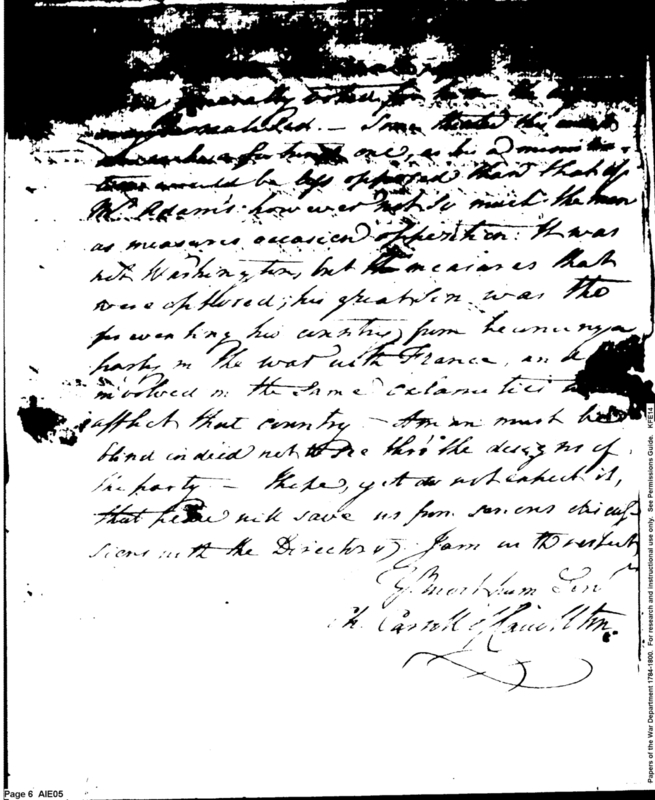 generally voted for
Some
one, as his administra-
tion would be less opposed than that of
Mr. Adam's: however not so much the man
as measures occasion opposition: It was
not Washington, but the measures that
were opposed; his great sin was the
preventing his country from becoming a
party in the war with France, and
involved in the same calamities
afflict that country – A man must be
blind indeed not to see thro' the designs of
the party – I hope, yet do not expect it,
that peace will save us from serious discus-
sions with the Directory, I am with respect
Yr. most hum Servt
Ch. Carroll of Carrollton.
Page 6 AIE05
Papers of the War Department 1784-1800. For research and instructional use only. See Permissions Guide. KFE14